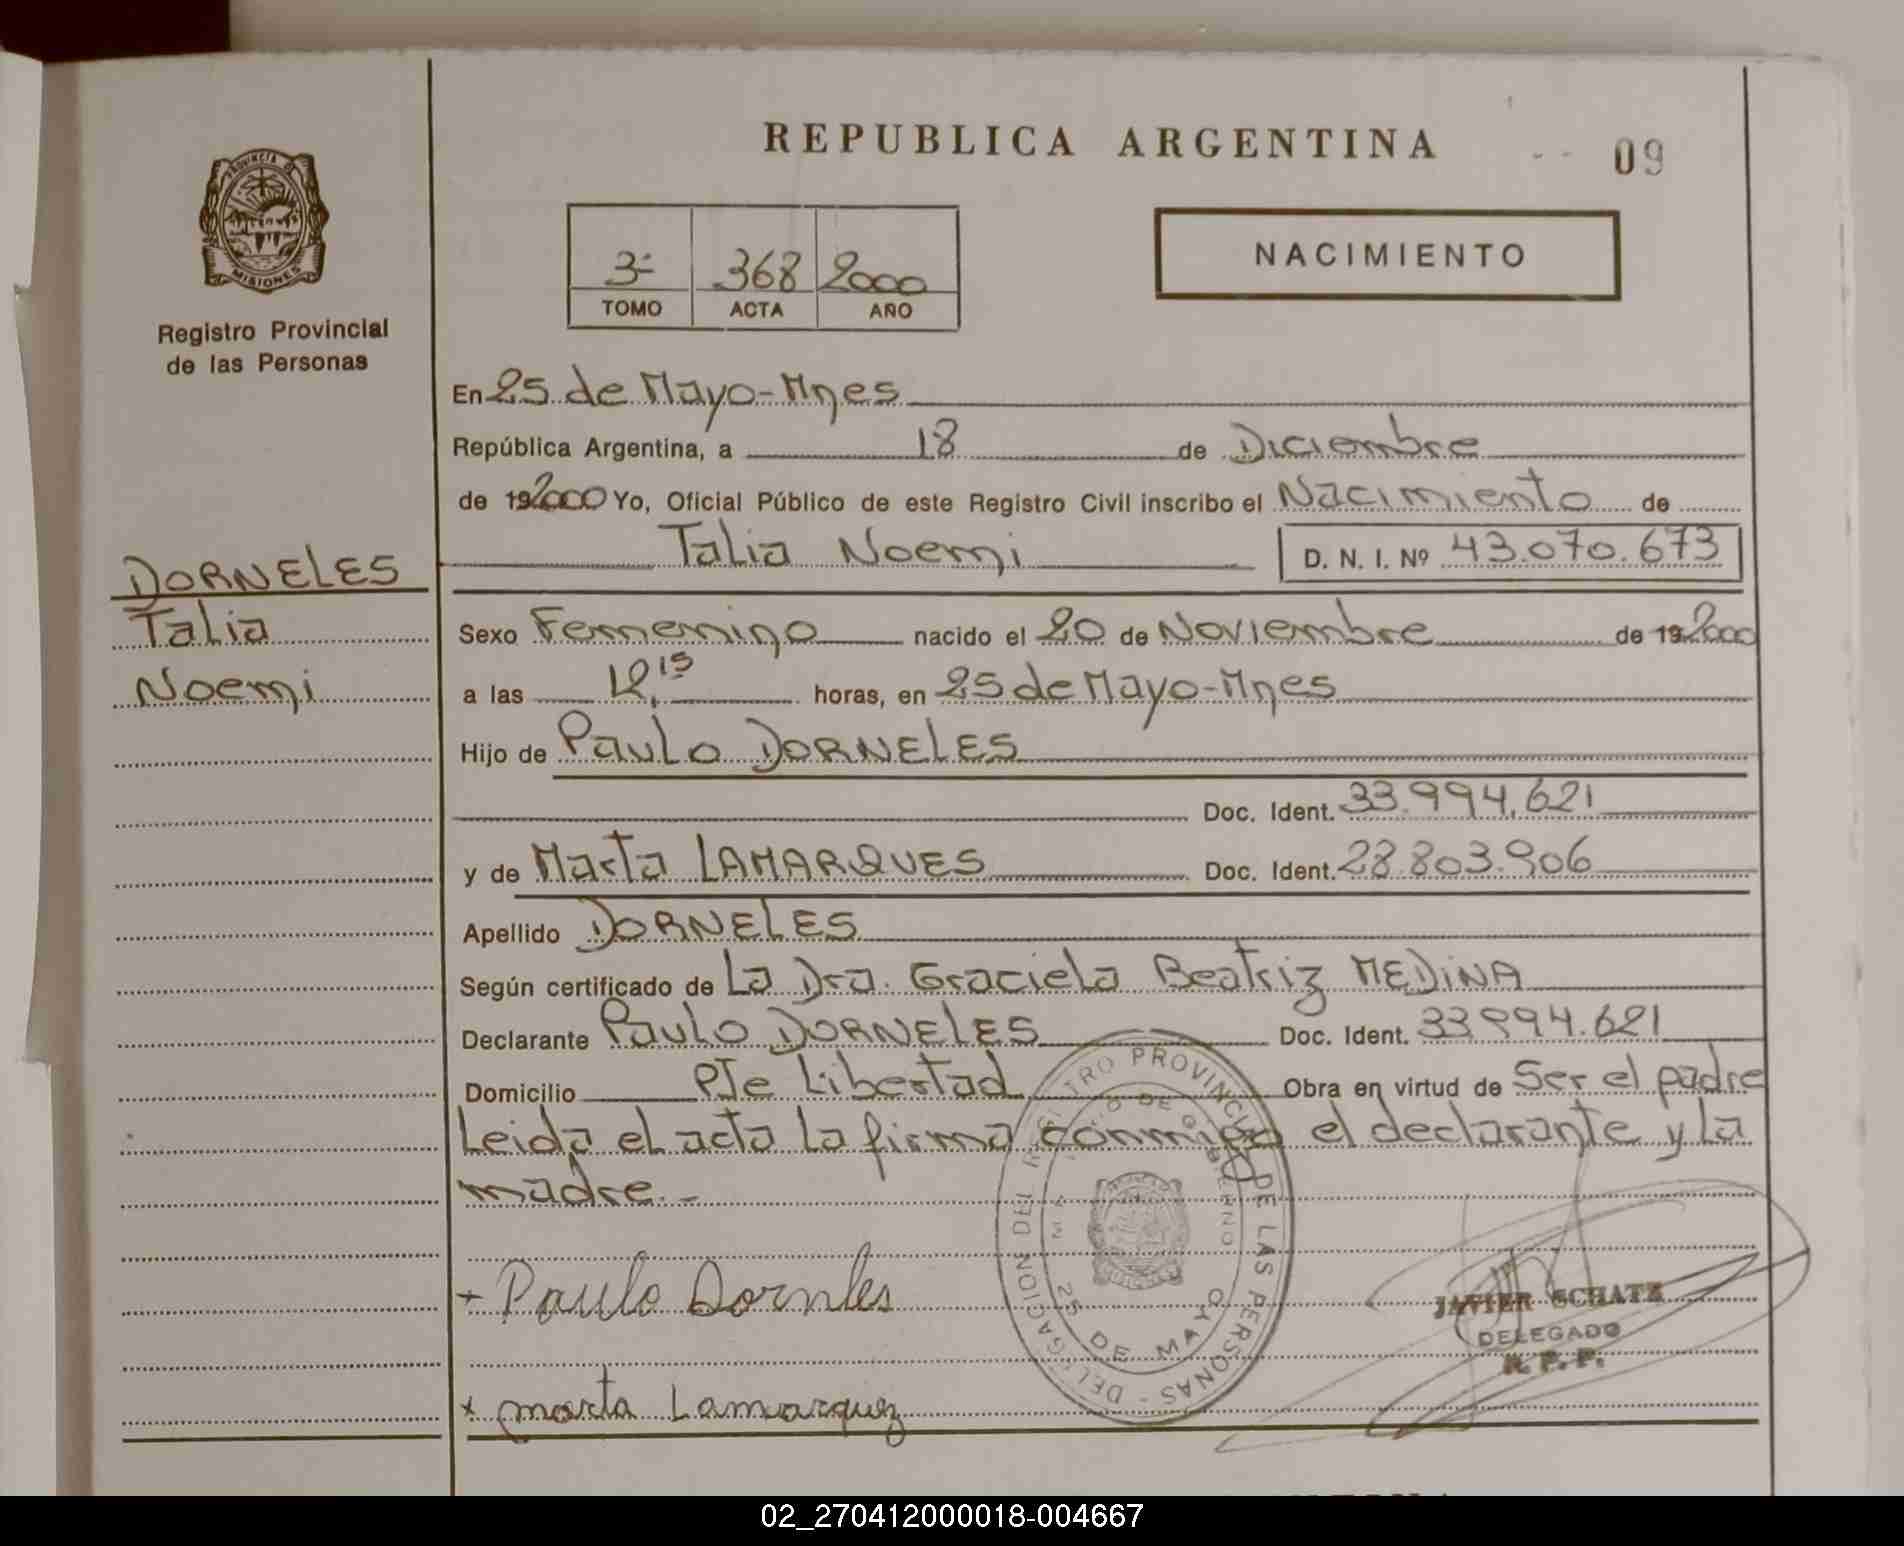 REPUBLICA ARGENTINA
09
PROVINCIA D MISIONES
Registro Provincial
de las Personas
3- 368 2000
TOMO ACTA AÑO
NACIMIENTO
En 25 de Mayo-Mnes
República Argentina, a 18 de Diciembre
de 192000 Yo, Oficial Público de este Registro Civil inscribo el Nacimiento de
Talia Noemi D. N. I. Nº 43.070.673
DORNELES
Talia
Noemi
Sexo Femenino nacido el 20 de Noviembre de 192000
a las 12,15 horas, en 25 de Mayo-Mnes
Hijo de Paulo DORNELES
Doc. Ident. 33.994.621
y de Marta LAMARQUES Doc. Ident. 28.803.906
Apellido DORNELES
Según certificado de La Dra. Graciela Beatriz MEDiNA
Declarante Paulo DORNELES Doc. Ident. 33994.621
Domicilio Pje Libertad Obra en virtud de Ser el padre
Leida el acta la firma conmigo el declarante y la
madre.-
DELEGACION DEL REGISTRO PROVINCIAL DE LAS PERSONAS -
DE GOBIERNO
25 DE MAYO
+ Paulo Dornles
JAVIER SCHATZ
DELEGADO
R. P. P.
x marta Lamarquez
02_270412000018-004667